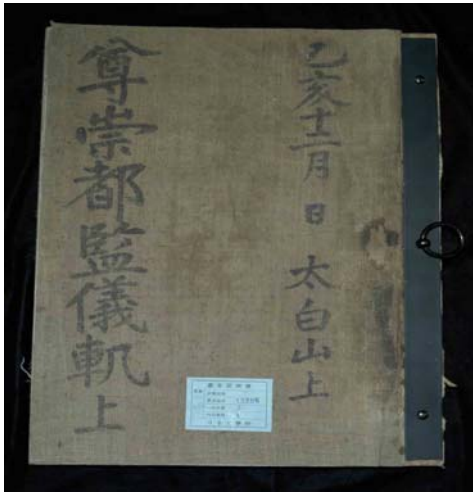 己亥十二月 日 太白山上
尊崇都監儀軌上